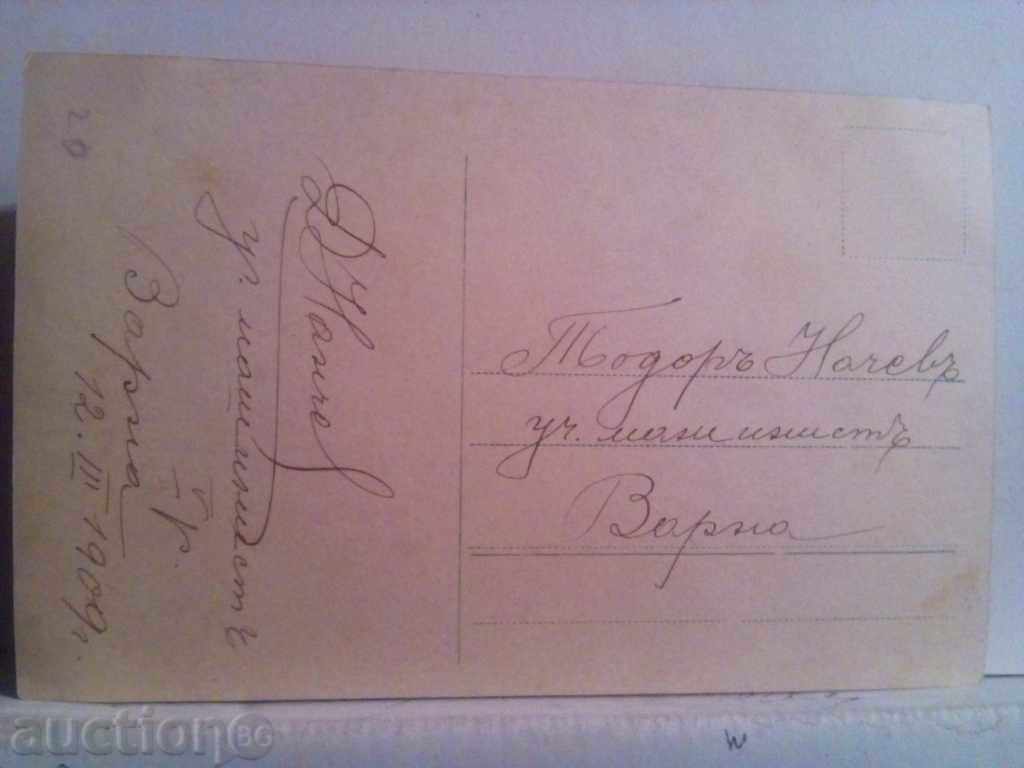 20
Тодоръ Начевъ
уч. машинистъ
Варна
уч. машинистъ
V р.
Варна
12. III 1909 г.
auctionBG